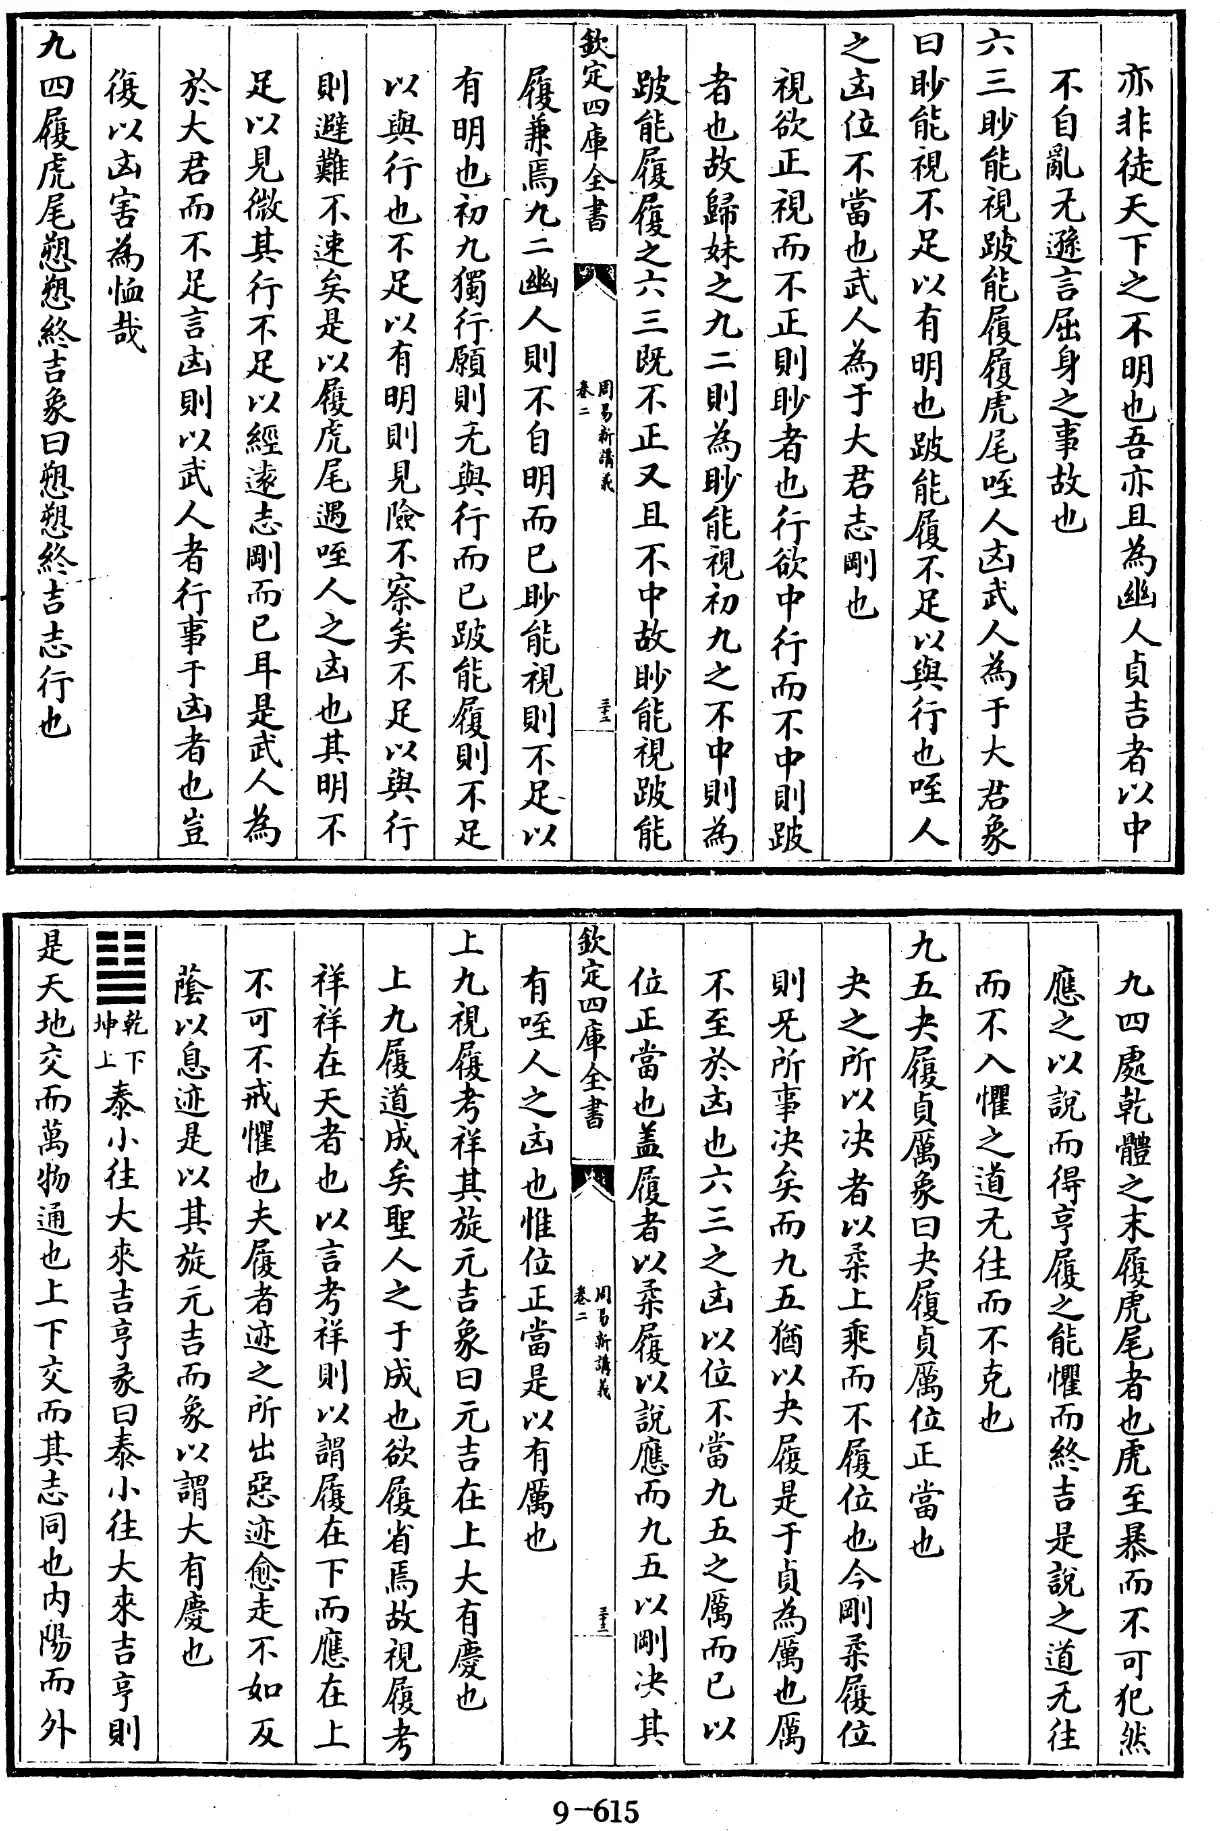 亦非徒天下之不明也吾亦且為幽人貞吉者以中
不自亂无遜言屈身之事故也
六三眇能視跛能履履虎尾咥人凶武人為于大君象
曰眇能視不足以有明也跛能履不足以與行也咥人
之凶位不當也武人為于大君志剛也
視欲正視而不正則眇者也行欲中行而不中則跛
者也故歸妹之九二則為眇能視初九之不中則為
跛能履履之六三既不正又且不中故眇能視跛能
欽定四庫全書
周易新講義
卷二
三十二
履兼焉九二幽人則不自明而已眇能視則不足以
有明也初九獨行願則无與行而已跛能履則不足
以與行也不足以有明則見險不察矣不足以與行
則避難不速矣是以履虎尾遇咥人之凶也其明不
足以見微其行不足以經遠志剛而已耳是武人為
於大君而不足言凶則以武人者行事于凶者也豈
復以凶害為恤哉
九四履虎尾愬愬終吉象曰愬愬終吉志行也
九四處乾體之末履虎尾者也虎至暴而不可犯然
應之以說而得亨履之能懼而終吉是說之道无往
而不入懼之道无往而不克也
九五夬履貞厲象曰夬履貞厲位正當也
夬之所以决者以柔上乘而不履位也今剛柔履位
則旡所事决矣而九五猶以夬履是于貞為厲也厲
不至於凶也六三之凶以位不當九五之厲而已以
位正當也盖履者以柔履以說應而九五以剛决其
欽定四庫全書
周易新講義
卷二
三十三
有咥人之凶也惟位正當是以有厲也
上九視履考祥其旋元吉象曰元吉在上大有慶也
上九履道成矣聖人之于成也欲履省焉故視履考
祥祥在天者也以言考祥則以謂履在下而應在上
不可不戒懼也夫履者迹之所出惡迹愈走不如反
蔭以息迹是以其旋元吉而象以謂大有慶也
乾下坤上泰小往大來吉亨彖曰泰小往大來吉亨則
是天地交而萬物通也上下交而其志同也内陽而外
9-615